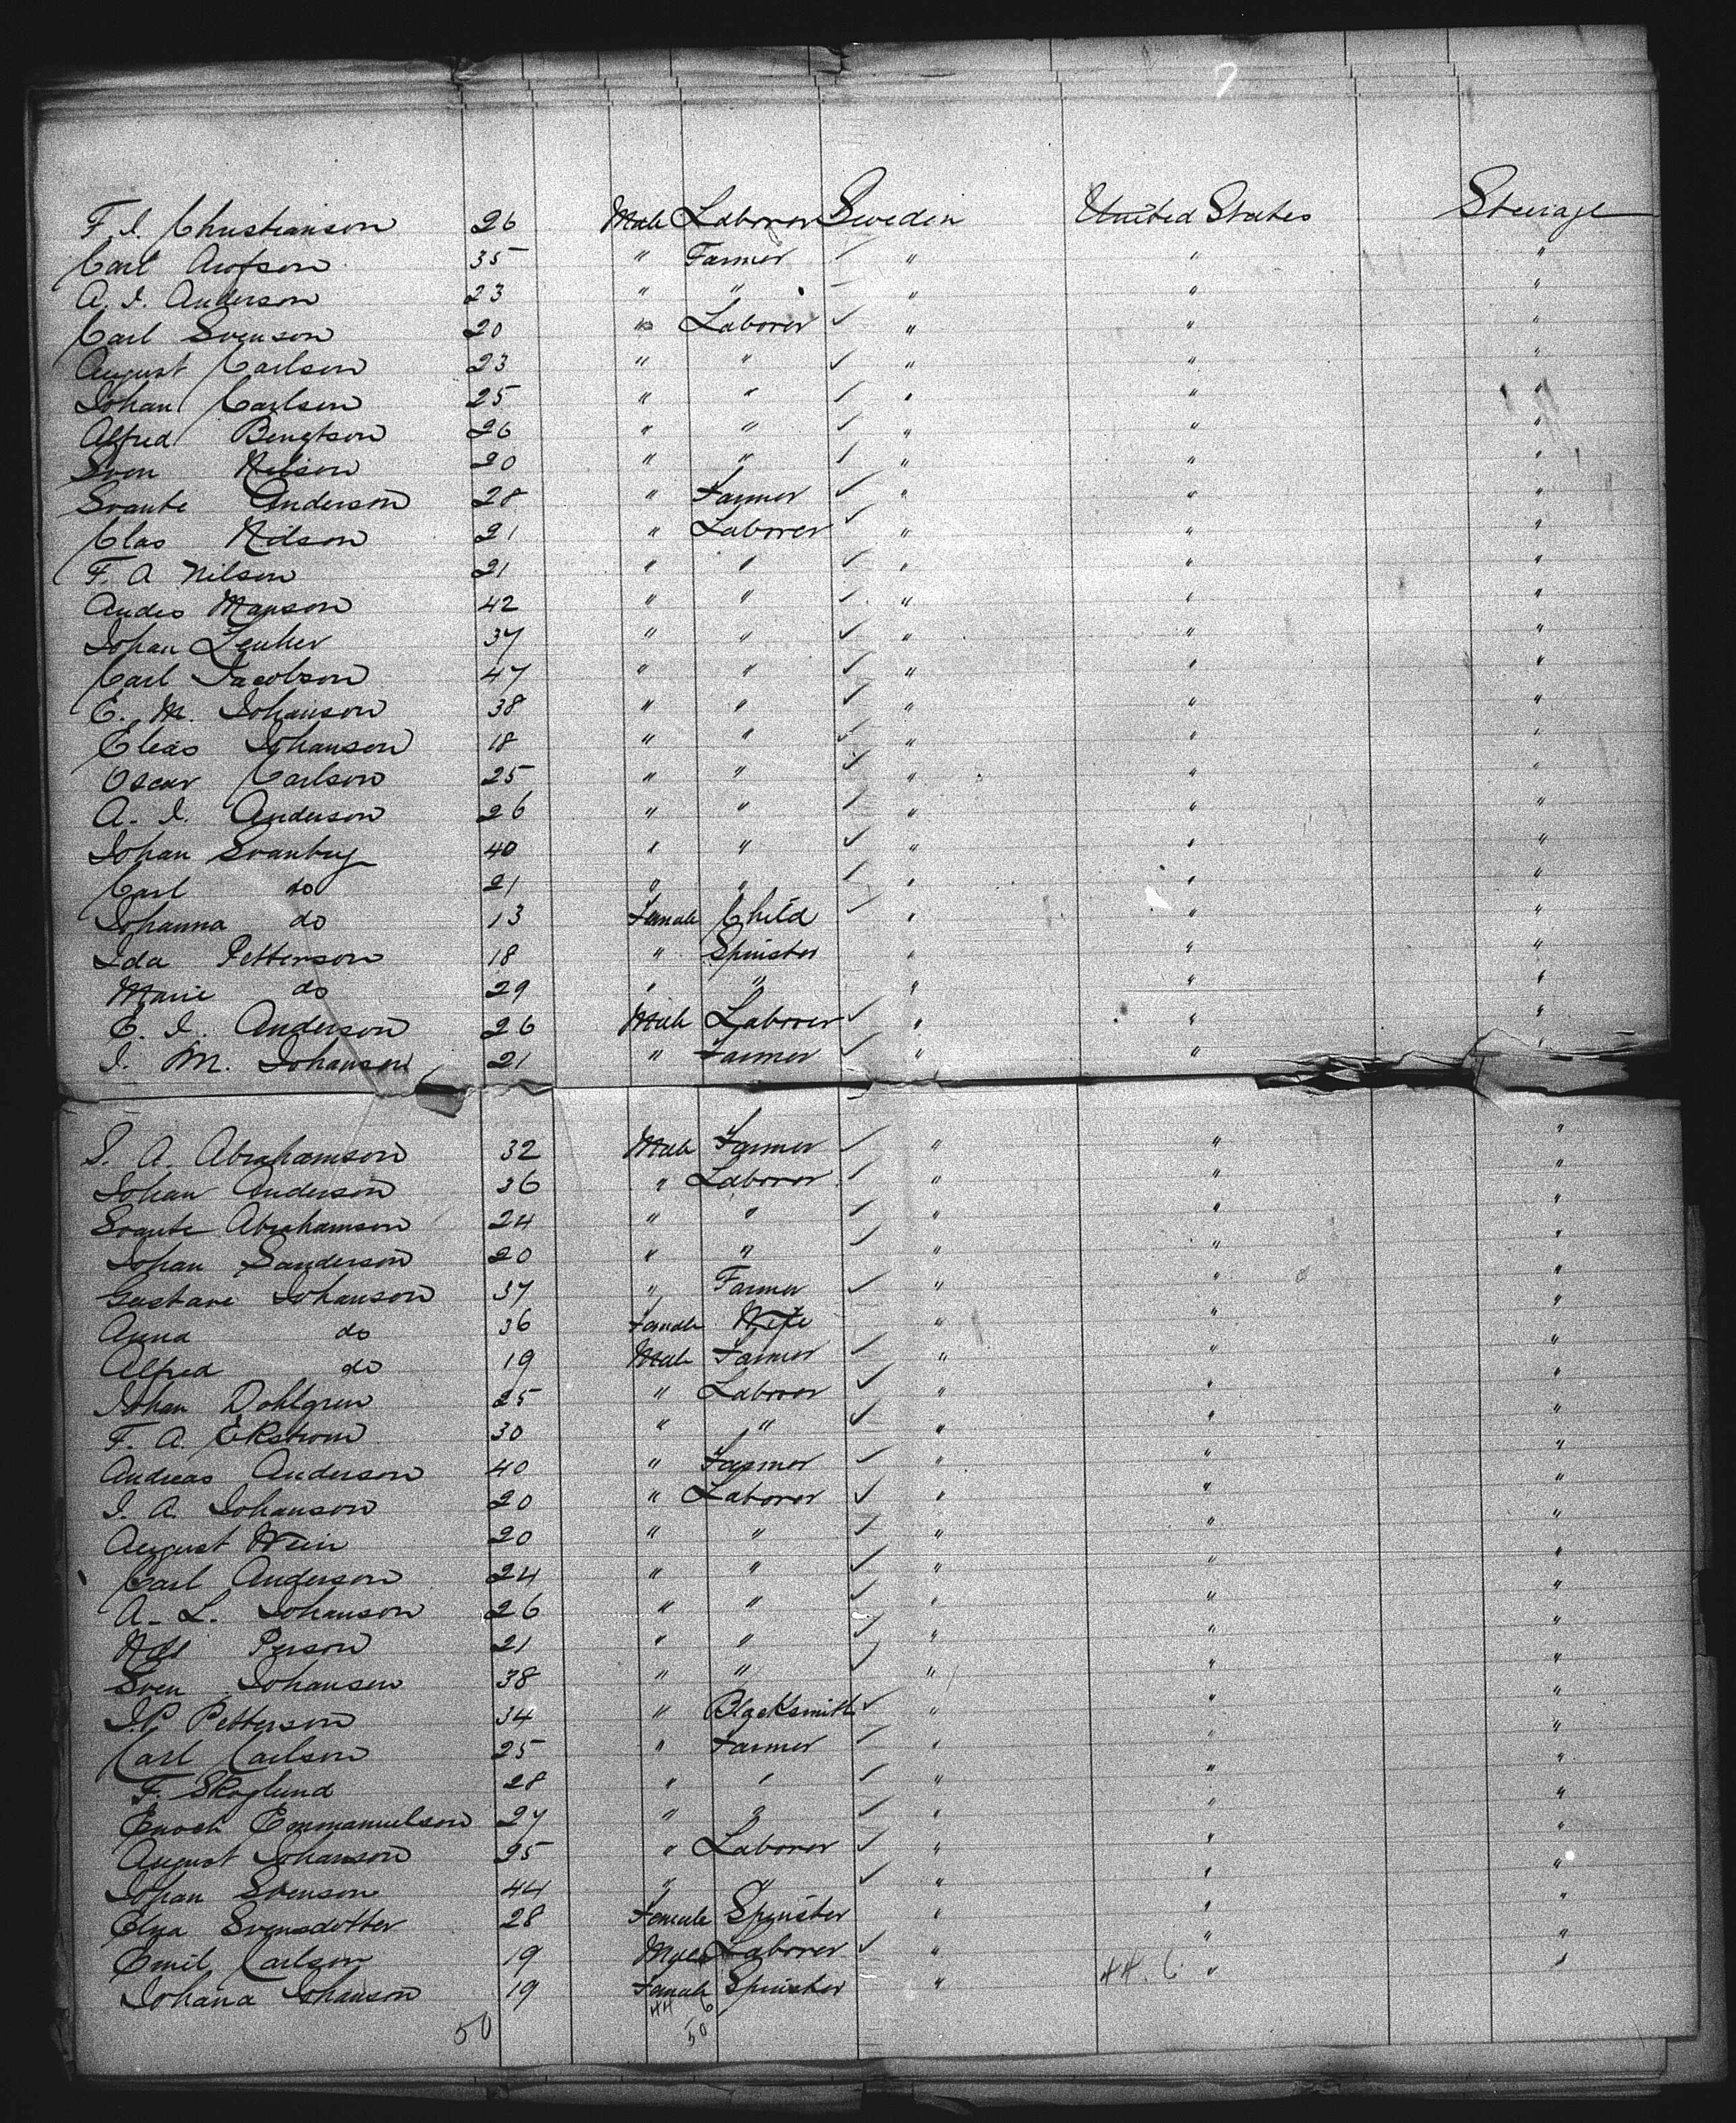 7
F. I. Christianson 26 Male Laborer Sweden United States Steerage
Carl Arofson 35 " Farmer ✓ " " "
A. I. Anderson 23 " " " " "
Carl Svenson 20 " Laborer ✓ " " "
August Carlson 23 " " ✓ " " "
Johan Carlson 25 " " ✓ " " "
Alfred Bengtson 26 " " ✓ " " "
Sven Nilson 20 " " ✓ " " "
Svante Anderson 28 " Farmer ✓ " " "
Clas Nilson 21 " Laborer ✓ " " "
F. A Nilson 21 " " ✓ " " "
Andes Manson 42 " " ✓ " " "
Johan 37 " " ✓ " " "
Carl Jacobson 47 " " ✓ " " "
E. M. Johanson 38 " " ✓ " " "
Elias Johanson 18 " " ✓ " " "
Oscar Carlson 25 " " ✓ " " "
A. I. Anderson 26 " " ✓ " " "
Johan Svanbug 40 " " ✓ " " "
Carl do 21 " " ✓ " " "
Johanna do 13 Female Child ✓ " " "
Ida Petterson 18 " Spinster " " "
Marie do 29 " " " " "
E. I. Anderson 26 Male Laborer ✓ " " "
I. M. Johanson 21 " Farmer ✓ " " "
S. A. Abrahamson 32 Male Farmer ✓ " " "
Johan Anderson 36 " Laborer ✓ " " "
Svante Abrahamson 24 " " ✓ " " "
Johan Sanderson 20 " " ✓ " " "
Gustave Johanson 37 " Farmer ✓ " " "
Anna do 36 Female Wife " " "
Alfred do 19 Male Farmer ✓ " " "
Johan Dohlgren 25 " Laborer ✓ " " "
F. A. Ekstrom 30 " " ✓ " " "
Andreas Anderson 40 " Farmer ✓ " " "
I. A. Johanson 20 " Laborer ✓ " " "
August 20 " " ✓ " " "
Carl Anderson 24 " " ✓ " " "
A. L. Johanson 26 " " ✓ " " "
Nils Person 21 " " ✓ " " "
Sven Johanson 38 " " ✓ " " "
I. P. Petterson 34 " Blacksmith ✓ " " "
Carl Carlson 25 " Farmer ✓ " " "
F. Skoglund 28 " " ✓ " " "
Enoch Emmanuelson 27 " " ✓ " " "
August Johanson 35 " Laborer ✓ " " "
Johan Svenson 44 " " ✓ " " "
Elna Svensdotter 28 Female Spinster " " "
Emil Carlson 19 Male Laborer ✓ " " "
Johana Johanson 19 Female Spinster " 44. 6 " "
44 6
50 50